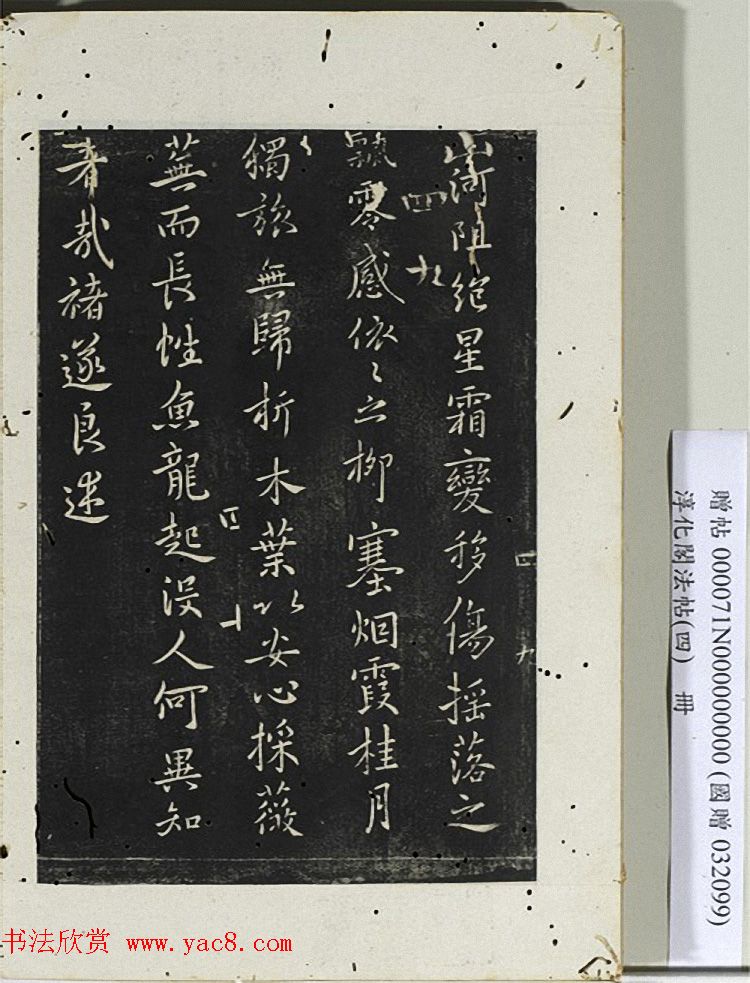 山河阻絶星霜變移傷摇落之
飄零感依〻之柳塞烟霞桂月
獨旅無歸折木葉以安心採薇
蕪而長性魚龍起没人何異知
者哉褚遂良述
四 九
四 九
贈帖 000071N000000000 (國贈 032099)
淳化閣法帖(四) 冊
书法欣赏 www.yac8.com